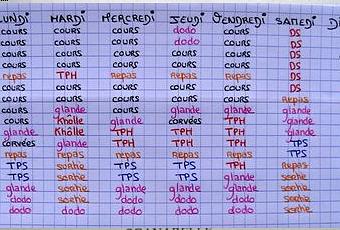 UNDI MARDI MERCREDI JEUDI VENDREDI SAMEDI Di
cours cours cours dodo cours DS
cours cours cours dodo cours DS
cours cours cours cours cours DS
cours cours cours cours cours DS
repas TPH Repas Repas Repas DS
cours cours cours cours cours DS
cours cours cours cours cours Repas
cours glande cours glande glande glande
cours Khôlle glande corvées TPH glande
glande Khôlle TPH TPH TPH glande
corvées glande TPH TPH TPH TPS
repas repas repas repas repas TPS
TPS sortie TPS TPS TPH Repas
TPS sortie TPS TPS glande sortie
glande sortie glande glande glande sortie
dodo sortie dodo dodo dodo sortie
dodo dodo dodo dodo dodo sortie